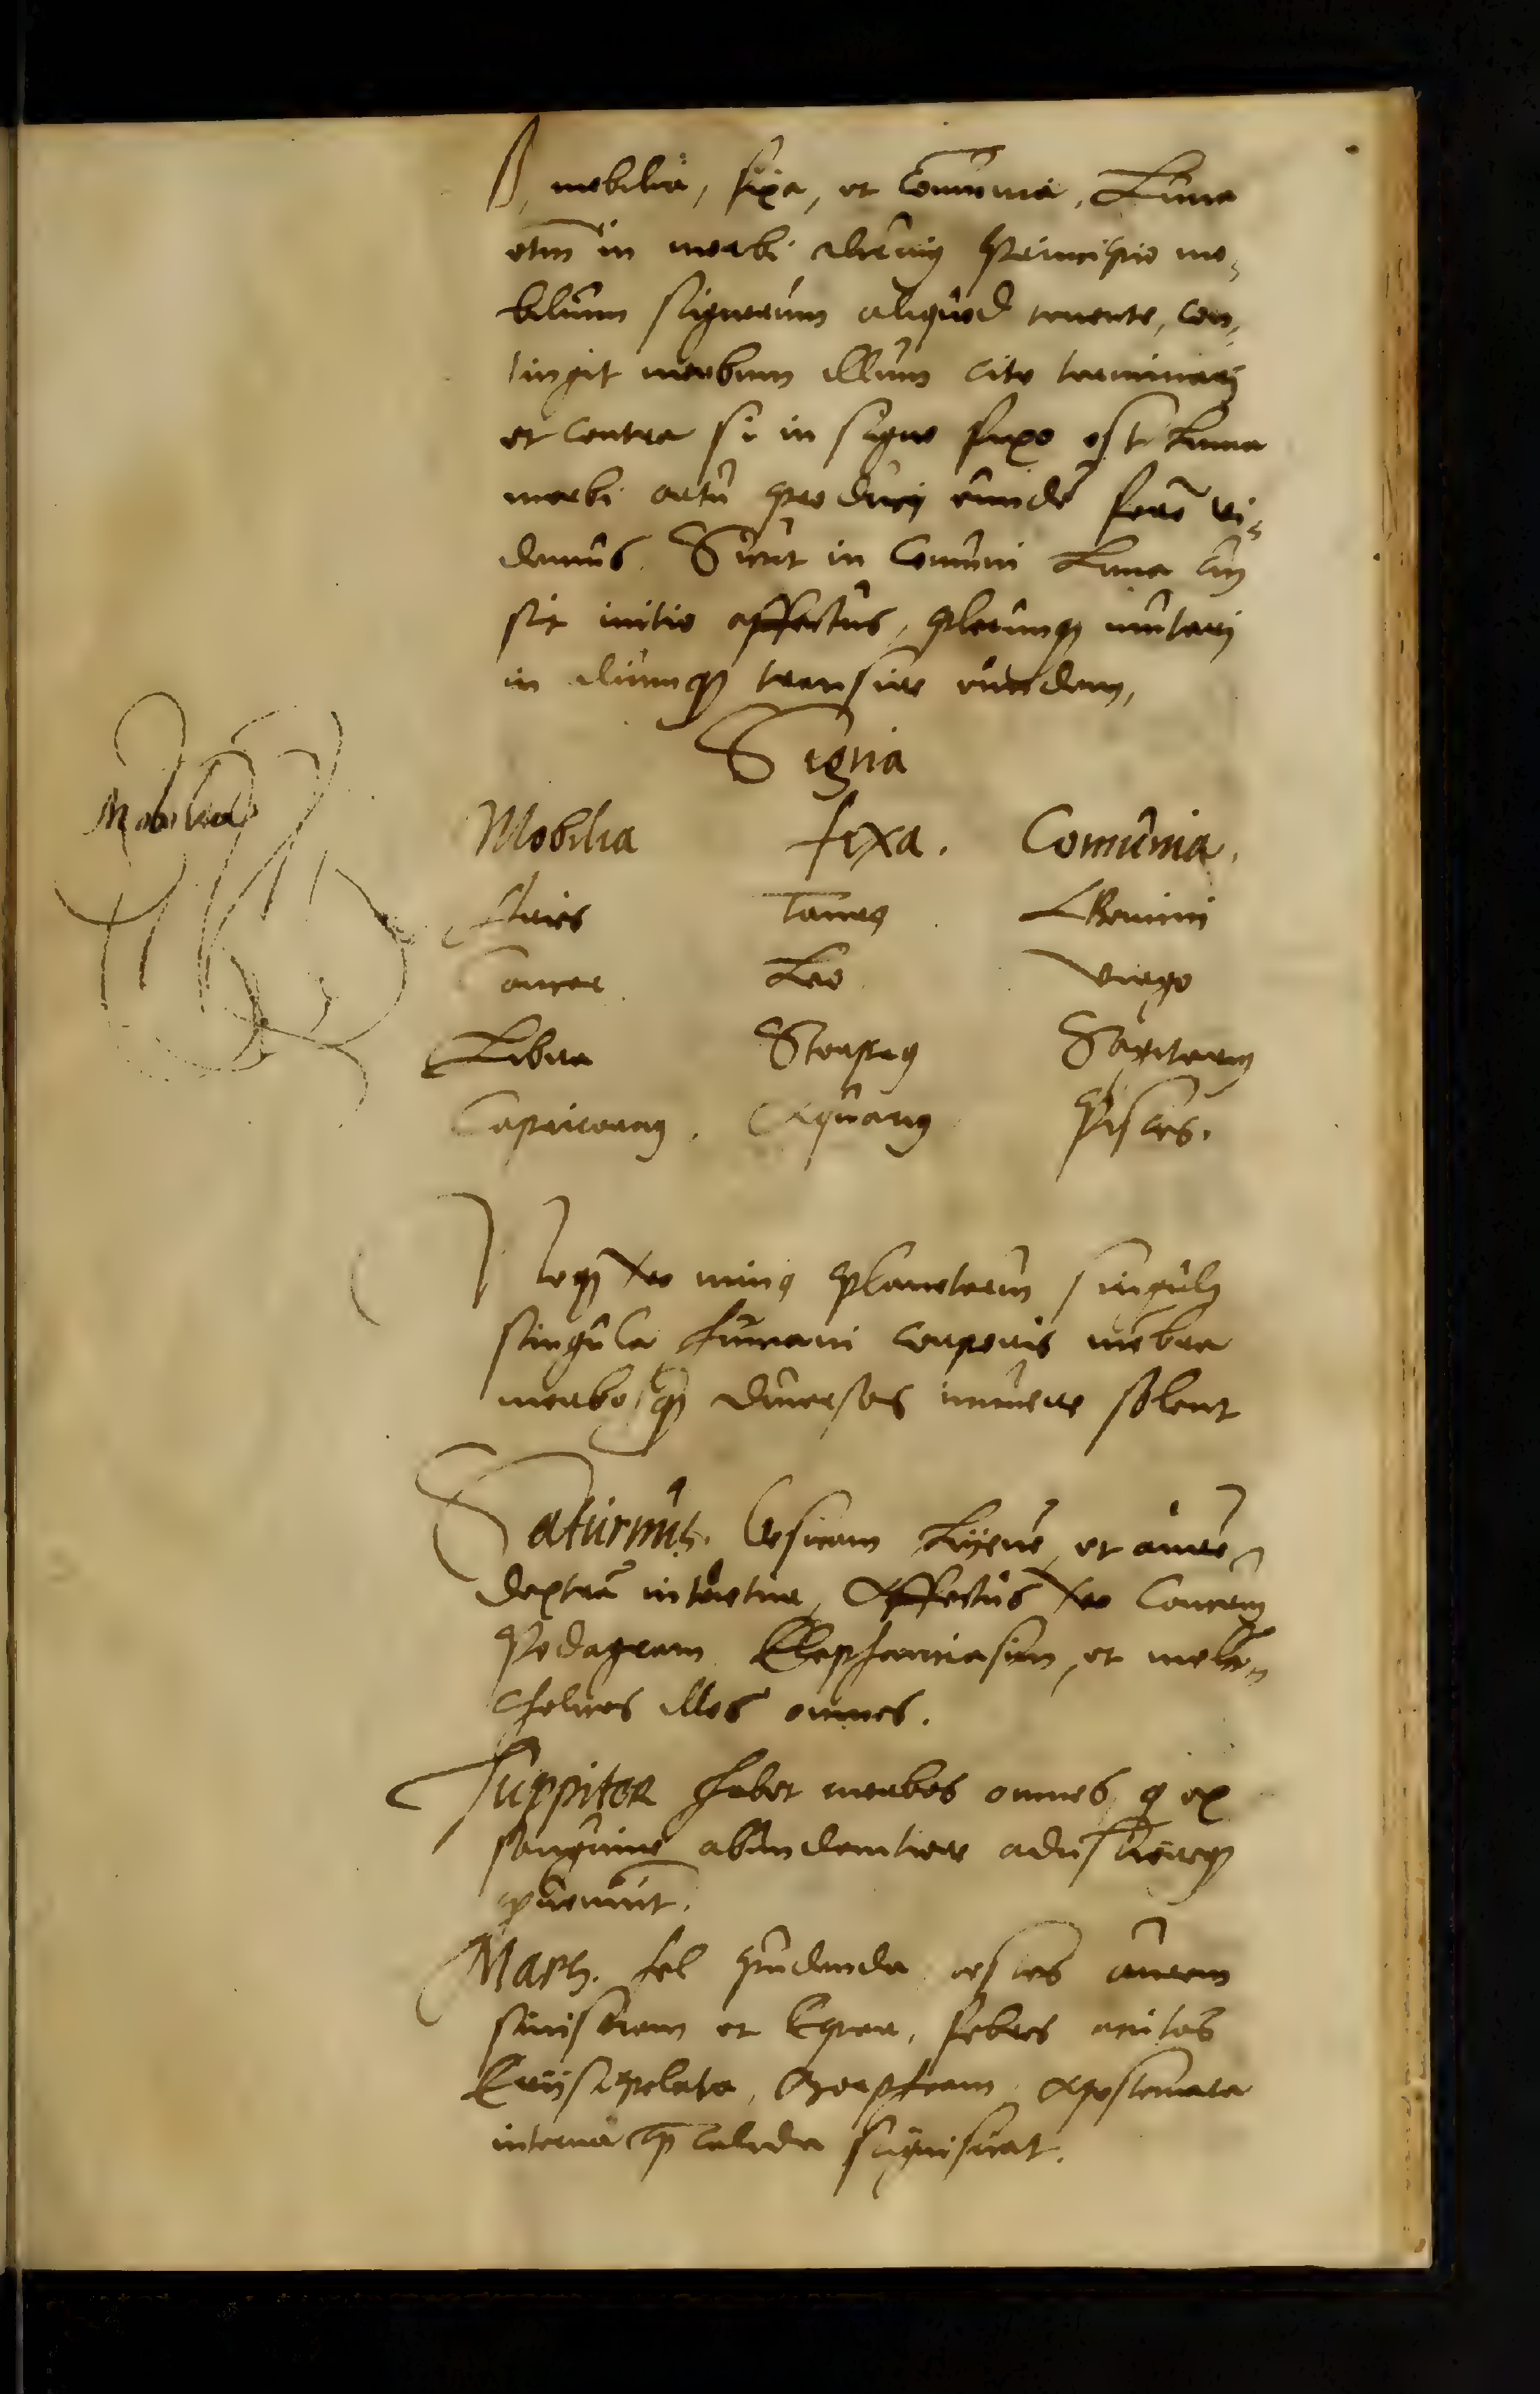 mobilia, fixa, et Comunia, Luna
etm in morbi principio mo=
bilium signorum aliquod tenente, con=
tingit morbum illum cito terminari
et contra si in signo fixo est Luna
morbi ortu produci eunde fere vi=
demus. Sicut in Comuni Luna cu
sit initio affectus, plerumq mutari
in aliumq transire eundem,
Signa
Mobilia
Mobilia fixa. Comunia.
Aries Taurus Gemini
Cancer Leo Virgo
Libra Scorpius Sagitarius
Capricornus. Aquarius Pisces.
Neq vero minus planetarum singuli
singula humani corporis mebra
morbosq diuersos innuere solent
Saturnus. Vesicam Lyene, et aure
dextra intuetur, Affectus vero Cancrum
Podagram Elephanciasim, et melan=
cholicos illos omnes.
Juppiter habet morbos omnes q ex
sanguine abundantiore adustioreq
proueniut.
Mars. fel pudenda testes aurem
sinistram et Epar, febres acutas
Eryssipelata, apostemata
interna q calida significat.